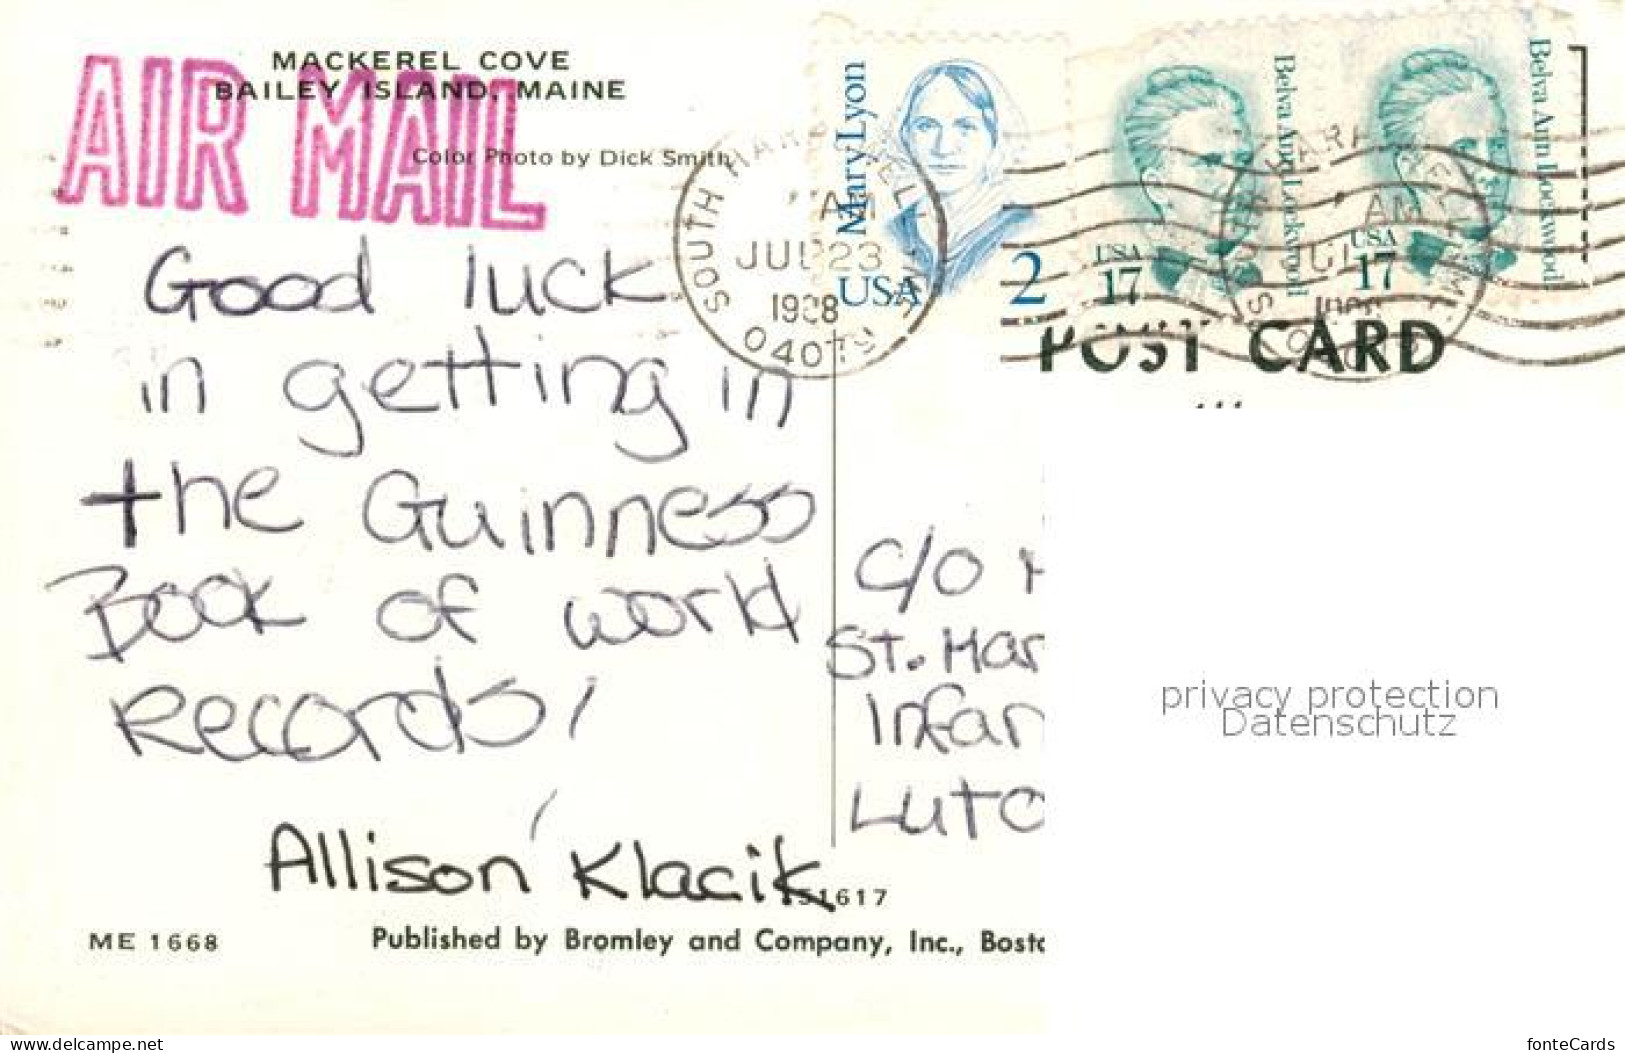 MACKEREL COVE
BAILEY ISLAND, MAINE
AIR MAIL
Color Photo by Dick Smith
Mary Lyon
USA
2
Belva Ann Lockwood
USA
17
Belva Ann Lockwood
USA
17
SOUTH HARPSWELL, ME
AM
JUL 23
1988
04079
AM
POST CARD
Good luck
in getting in
the Guinness
Book of world
records!
Allison Klacik
c/o
St. Mar
Infan
Luto
privacy protection
Datenschutz
51617
ME 1668
Published by Bromley and Company, Inc., Bosto
www.delcampe.net
fonteCards